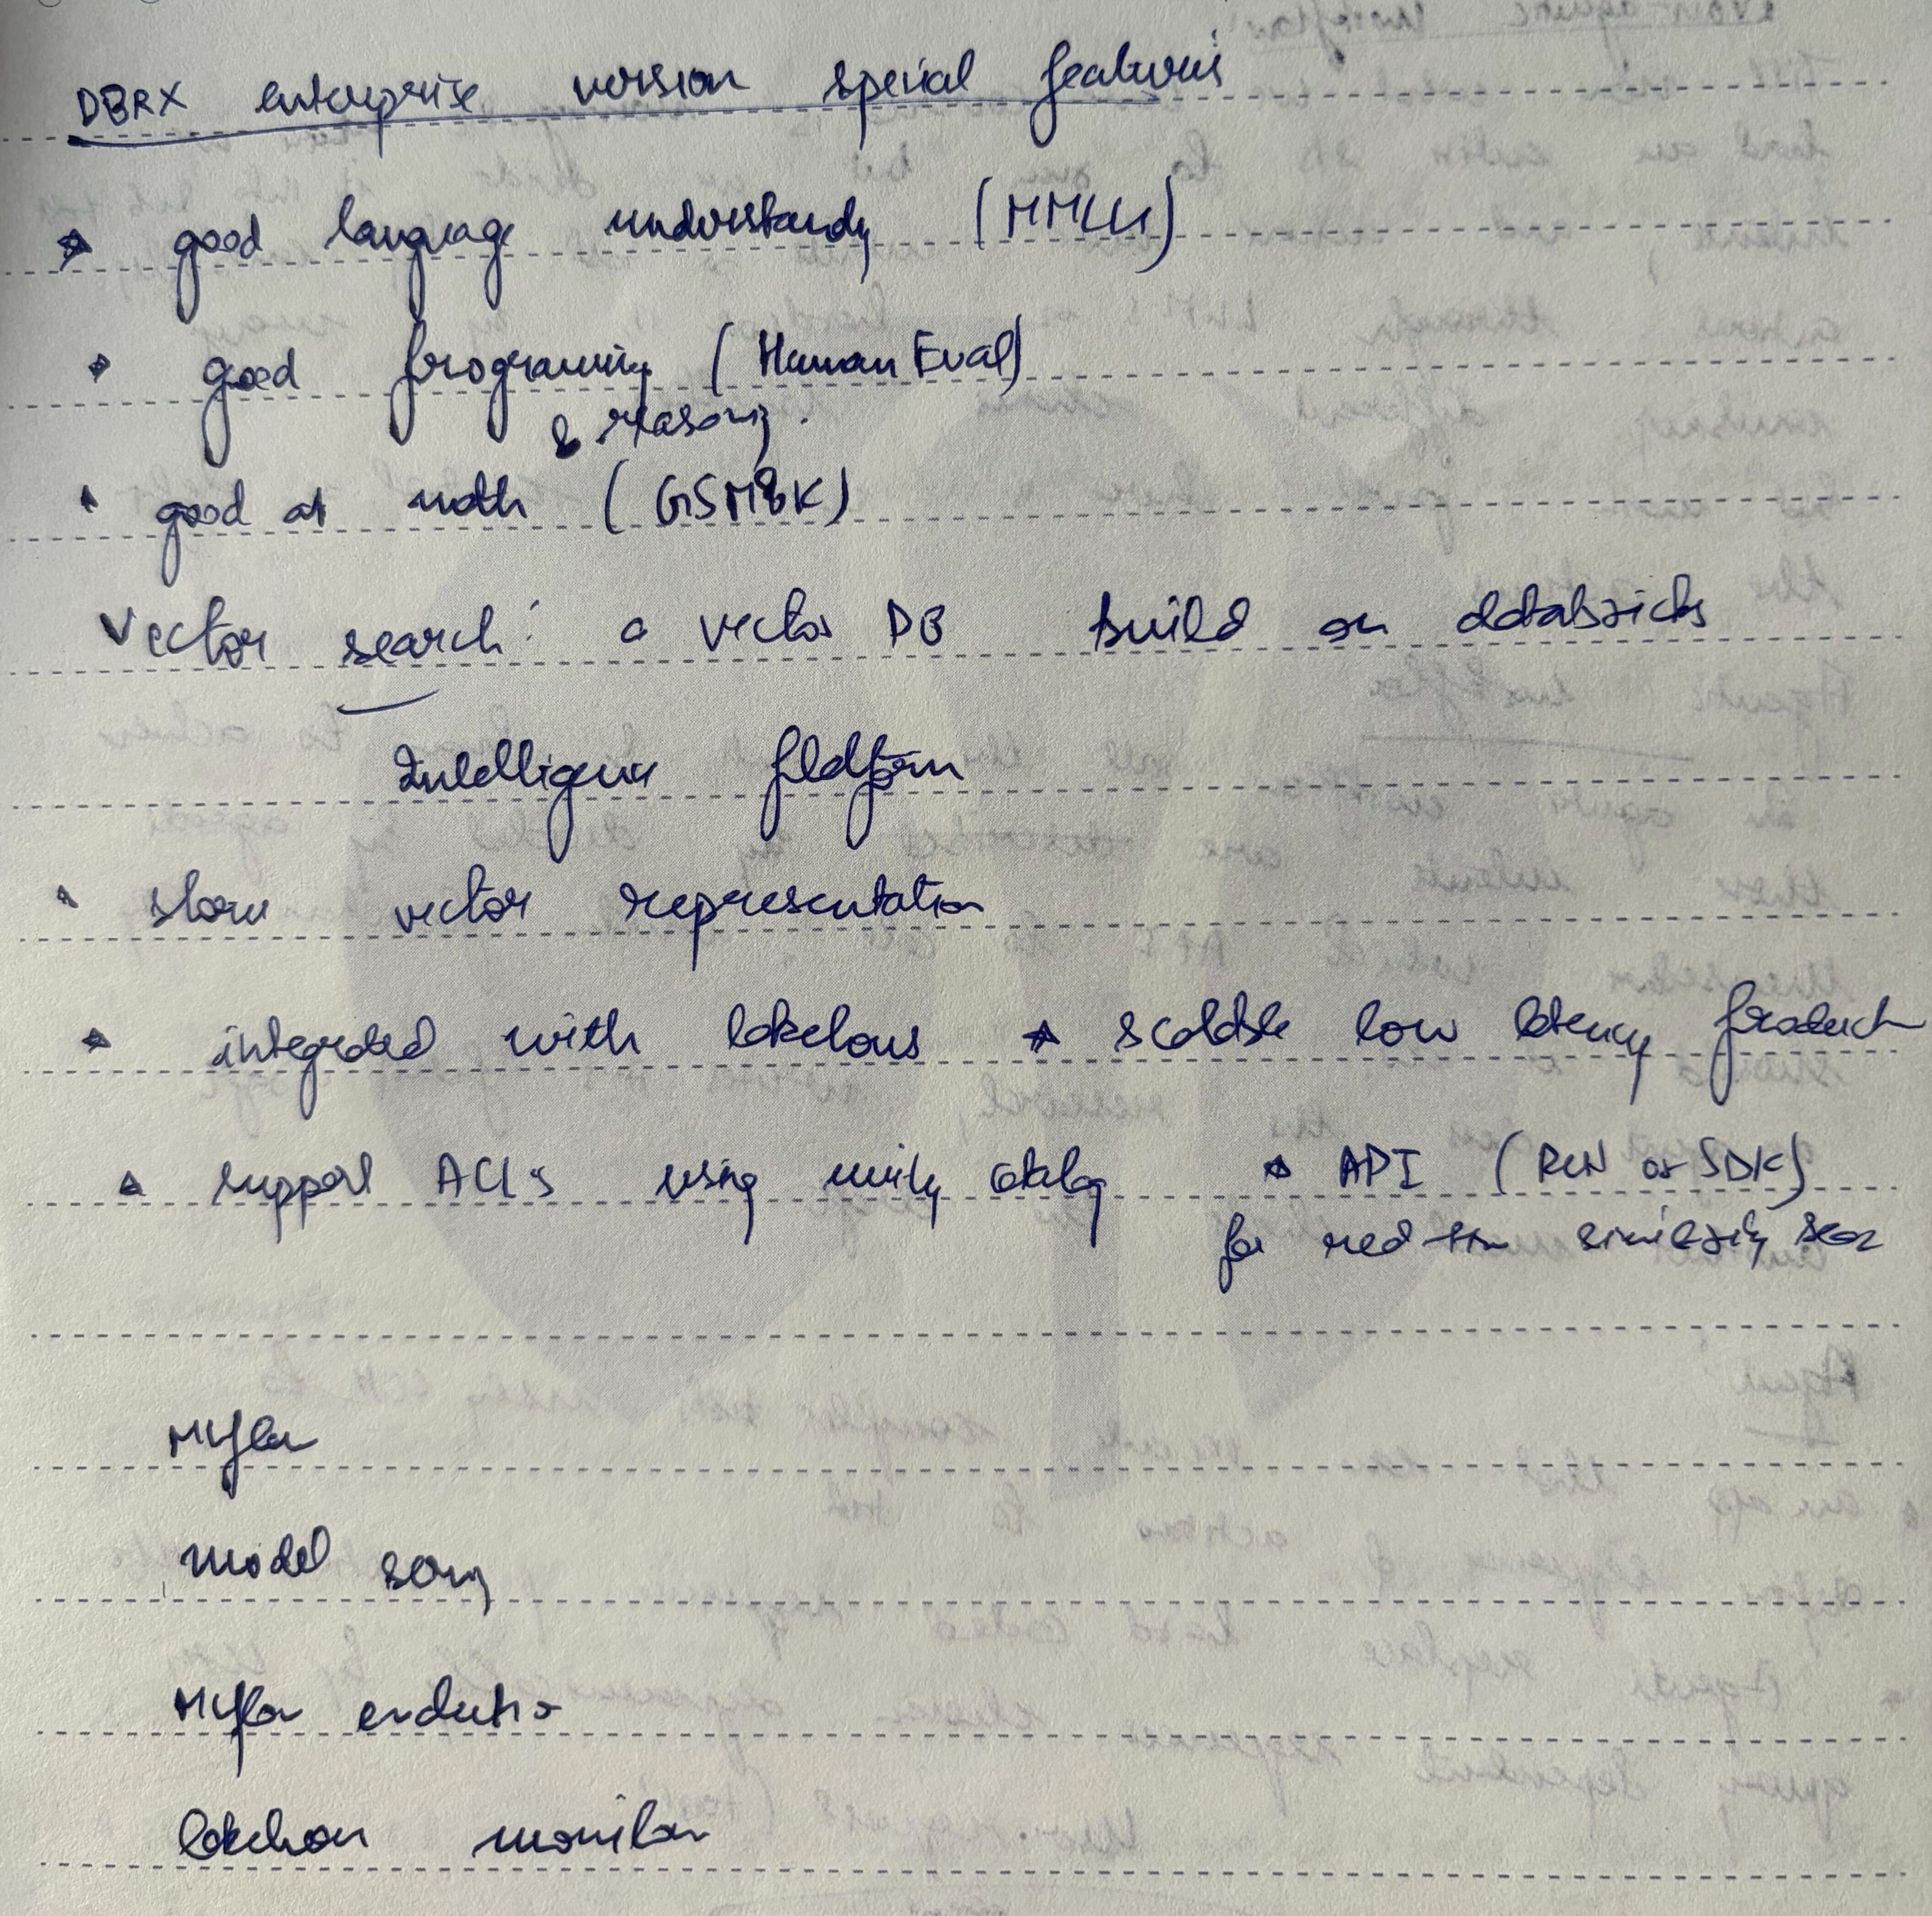 DBRX enterprise version special features
good language understandy (MMLU)
good programming (Human Eval)
& reasoning.
good at math (GSM8K)
Vector search: a vector DB build on databricks
Intelligence platform
store vector representation
integrated with lakehous * scalable low latency product
support ACLs using unity catalog * API ( or SDK)
for real time similarity sear
MLflow
model serving
MLflow evaluation
lakehouse monitor